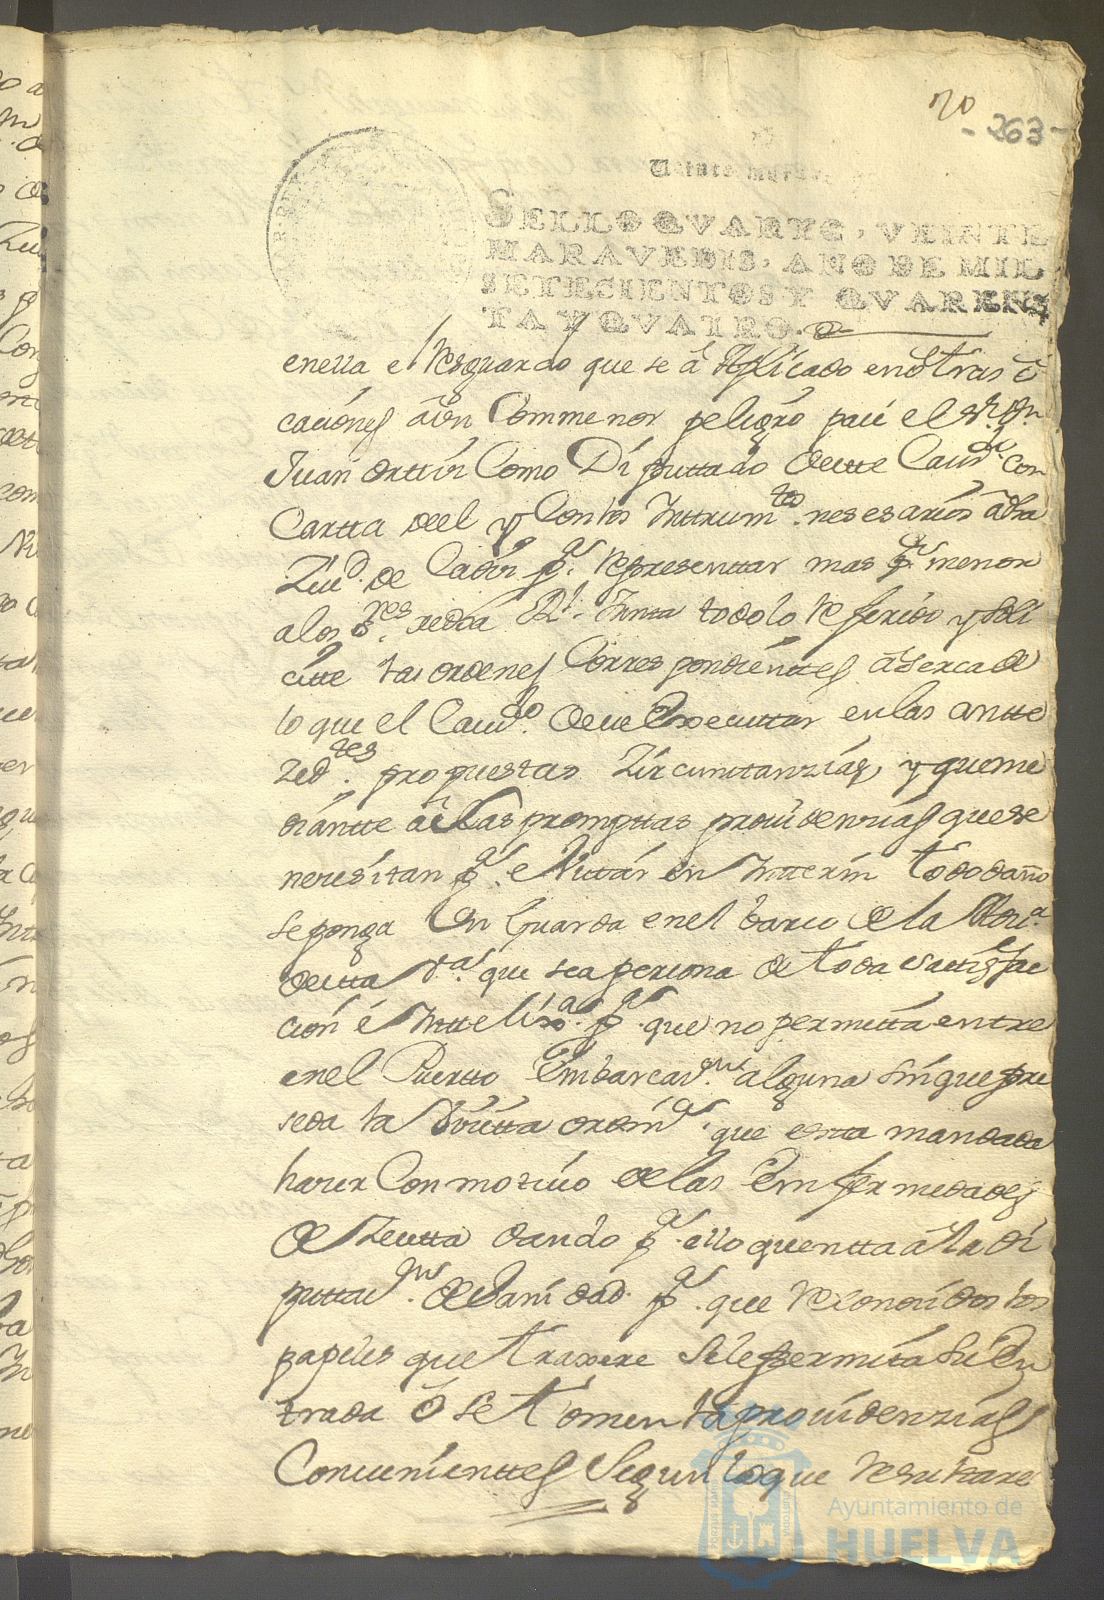 70
-263-
Veinte marave
SELLO QVARTO, VEINTE
MARAVEDIS, AÑO DE MIL
SETECIENTOS Y QVAREN
TA Y QVATRO.
enella el Resguardo que se á Aplicado en otras o
caciones aun Com menor peligro passe el Sr. Dn.
Juan orttiz Como Diputtado de este Cavdo. con
Cartta deel y Con los Inttrumtos. nesesarios a dha
Ziud. de Cadiz pa. Representtar mas pr. menor
a los Sres. de dha Rl. Junta todo lo Referido y soli
citte las ordenes Correspondienttes aserca de
lo que el Cavdo. deve Executtar en las antte
Zedtes. propuestas Zircunstanzias, y que me
diantte a las promptas providenzias que se
necesitan pa. evittar en Intterin todo daño
se ponga Un Guarda en el barco de la
de esta Va. que sea persona de toda sattisfac
cion é Inttelixa. pa. que no permitta entre
en el Puertto Embarcazn. alguna sin que pre
seda la Visitta ordina. que esta mandada
hacer Con motivo de las Emfermedades
de Zeutta dando pa. ello quentta a la Di
puttazn. de Sanidad pa. que Reconocidos los
papeles que traxere se le permita su En
trada ó se tomen las providenzias
Conveniencttes Segun lo que Resulttare
Ayuntamiento de
HUELVA